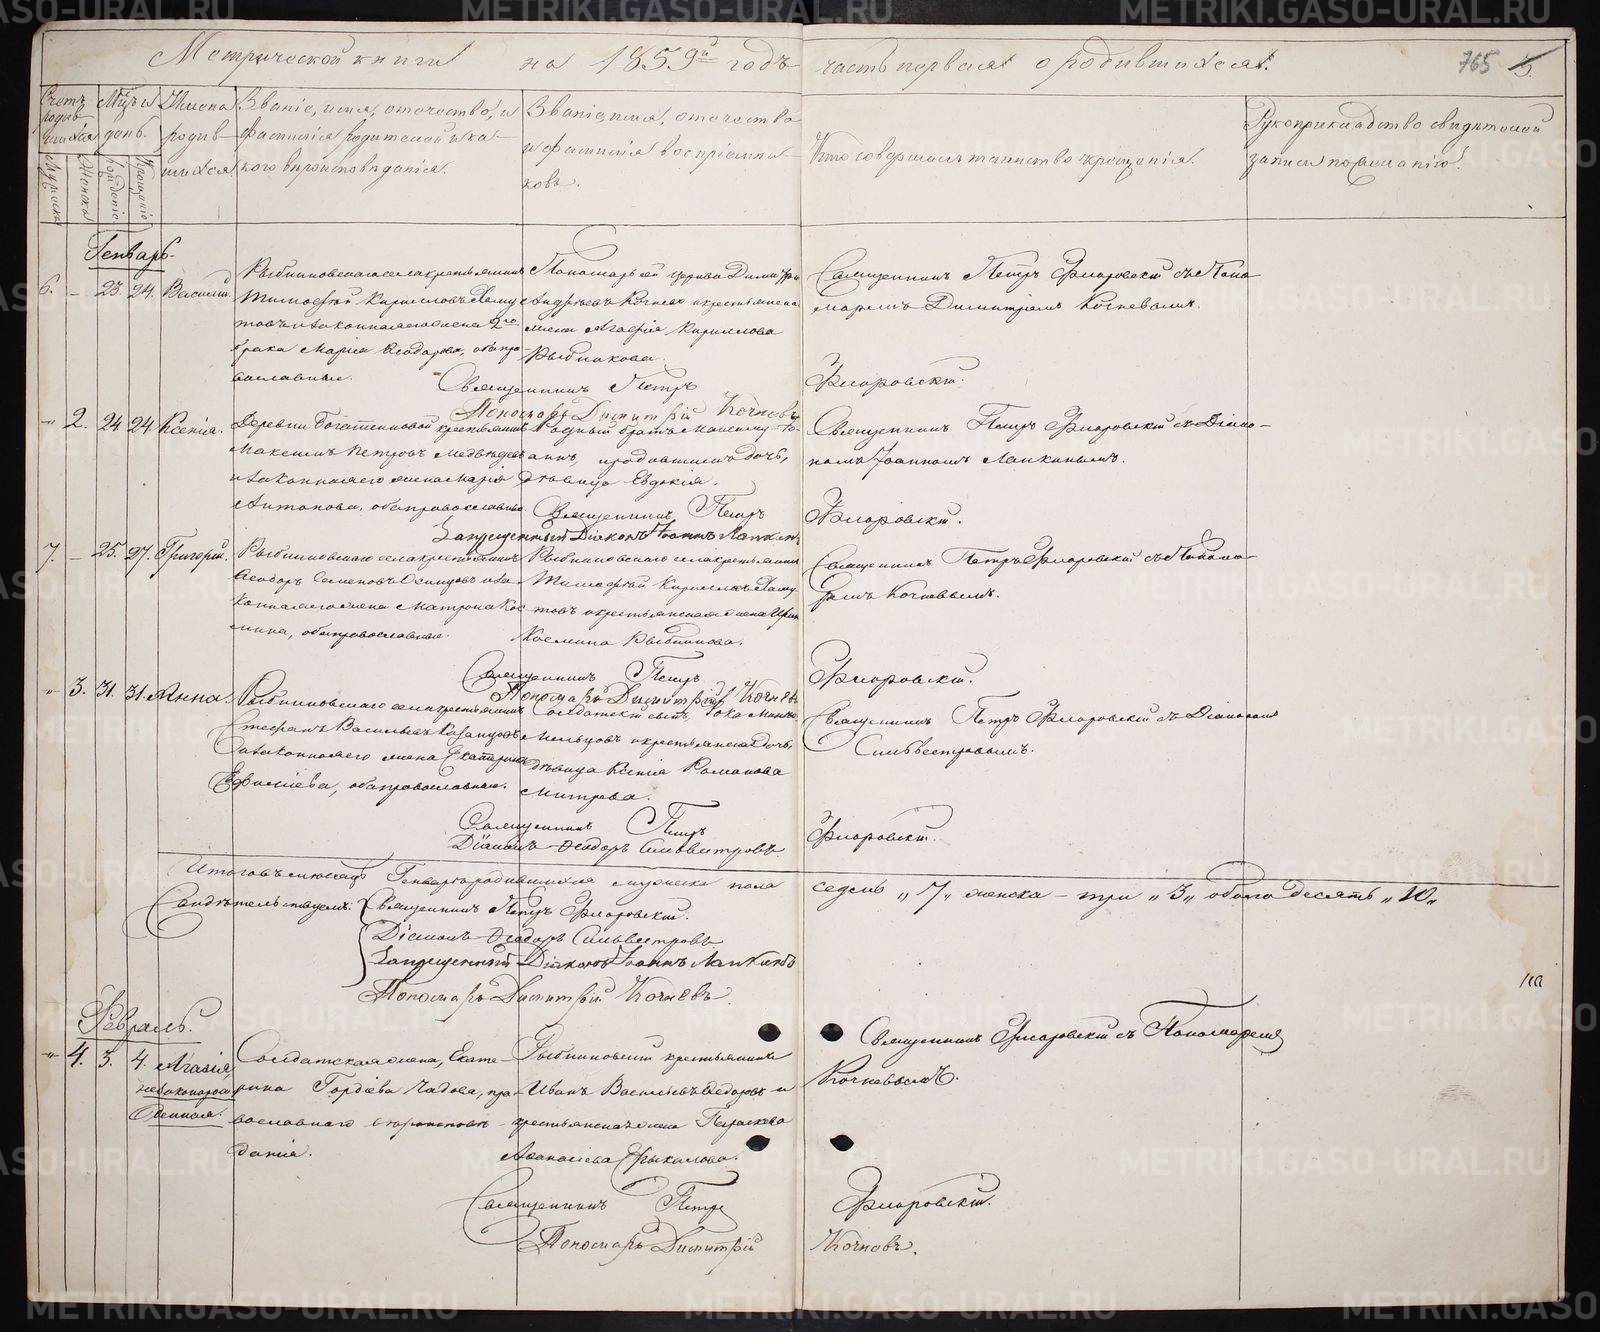 Метрической книги на 1859й годъ часть первая о родившихся.
765 5
Счетъ родив-шихся
Мѣсяцъ и день.
Имена родив-шихся
Званіе, имя, отчество, и фамилія родителей и какого вѣроисповѣданія.
Званіе, имя, отчество и фамилія воспріемни-ковъ.
Кто совершалъ таинство крещенія.
Рукоприкладство свидѣтелей записи по желанію.
Мужеска
Женска
Рожденіе
Крещеніе
Генварь.
6. – 23. 24. Василій.
Рыбниковскаго села крестьянинъ
Тимофей Кириловъ Хому-
товъ и законная его жена 2го
брака Марія Ѳеодорова, оба пра-
вославные.
Пономарь сей церкви Димитрій
Андреевъ Кочневъ и крестьянская
жена Агафія Кириллова
Рыбникова.
Священникъ Петръ Флоровскій съ Поно-
маремъ Димитріемъ Кочневымъ.
Священникъ Петръ Флоровскій.
Пономарь Димитрій Кочневъ
„ 2. 24. 24. Ксенія.
Деревни Богатенковой крестьянинъ
Максимъ Петровъ Медвѣдевъ
и законная его жена Марія
Антонова, оба православные.
Родный братъ
дочь,
дѣвица Евдокія.
Священникъ Петръ Флоровскій съ Діако-
номъ Іоанномъ Лапкинымъ.
Священникъ Петръ Флоровскій.
Запрещенный Діаконъ Іоаннъ Лапкинъ
7. – 25. 27. Григорій.
Рыбниковскаго села крестьянинъ
Ѳеодоръ Семеновъ Осинцовъ и за-
конная его жена Матрона Кос-
мина, оба православные.
Рыбниковскаго села крестьянинъ
Тимофей Кириловъ Хому-
товъ и крестьянская жена Ирина
Космина Рыбникова.
Священникъ Петръ Флоровскій съ Понома-
ремъ Кочневымъ.
Священникъ Петръ Флоровскій.
Пономарь Димитрій Кочневъ
„ 3. 31. 31. Анна.
Рыбниковскаго села крестьянинъ
Стефанъ Васильевъ Казанцовъ
и законная его жена Екатерина
Ефимиева, оба православные.
Солдатскій сынъ
и крестьянская дочь,
дѣвица Ксенія Романова
Митрева.
Священникъ Петръ Флоровскій съ Діакономъ
Сильвестровымъ.
Священникъ Петръ Флоровскій.
Діаконъ Ѳеодоръ Сильвестровъ
Итого въ мѣсяцѣ Генварѣ родившихся мужеска пола седмь „7„ женска – три „3„ обоего десять „10„
Свидѣтельствуемъ: Священникъ Петръ Флоровскій.
Діаконъ Ѳеодоръ Сильвестровъ
Запрещенный Діаконъ Іоаннъ Лапкинъ
Пономарь Димитрій Кочневъ.
Февраль.
„ 4. 3. 4. Агафія
незаконорож
денная.
Солдатская жена, Екате-
рина Гордѣева Чадова, пра-
вославнаго вѣроисповѣ-
данія.
Рыбниковскій крестьянинъ
Иванъ Васильевъ Ѳедоровъ и
крестьянская жена Параскева
Аѳанасіева
Священникъ Флоровскій съ Пономаремъ
Кочневымъ.
Священникъ Петръ Флоровскій.
Пономарь Димитрій Кочневъ.
METRIKI.GASO-URAL.RU